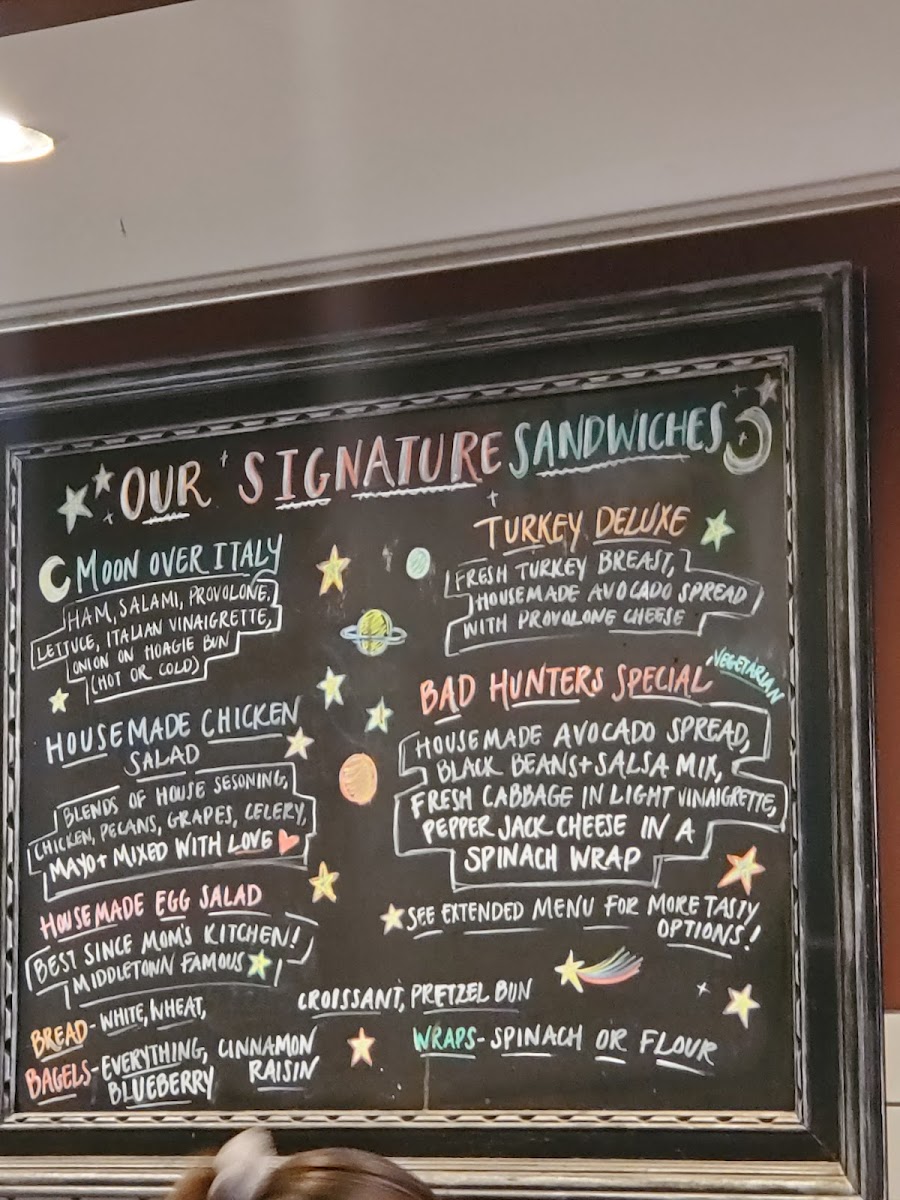 OUR SIGNATURE SANDWICHES
MOON OVER ITALY
HAM, SALAMI, PROVOLONE,
LETTUCE, ITALIAN VINAIGRETTE,
ONION ON HOAGIE BUN
(HOT OR COLD)
HOUSEMADE CHICKEN
SALAD
BLENDS OF HOUSE SESONING,
CHICKEN, PECANS, GRAPES, CELERY,
MAYO+ MIXED WITH LOVE
HOUSEMADE EGG SALAD
BEST SINCE MOM'S KITCHEN!
MIDDLETOWN FAMOUS
TURKEY DELUXE
FRESH TURKEY BREAST,
HOUSEMADE AVOCADO SPREAD
WITH PROVOLONE CHEESE
BAD HUNTERS SPECIAL VEGETARIAN
HOUSEMADE AVOCADO SPREAD,
BLACK BEANS+SALSA MIX,
FRESH CABBAGE IN LIGHT VINAIGRETTE,
PEPPER JACK CHEESE IN A
SPINACH WRAP
SEE EXTENDED MENU FOR MORE TASTY
OPTIONS!
BREAD - WHITE, WHEAT, CROISSANT, PRETZEL BUN
BAGELS - EVERYTHING, CINNAMON
BLUEBERRY RAISIN
WRAPS - SPINACH OR FLOUR